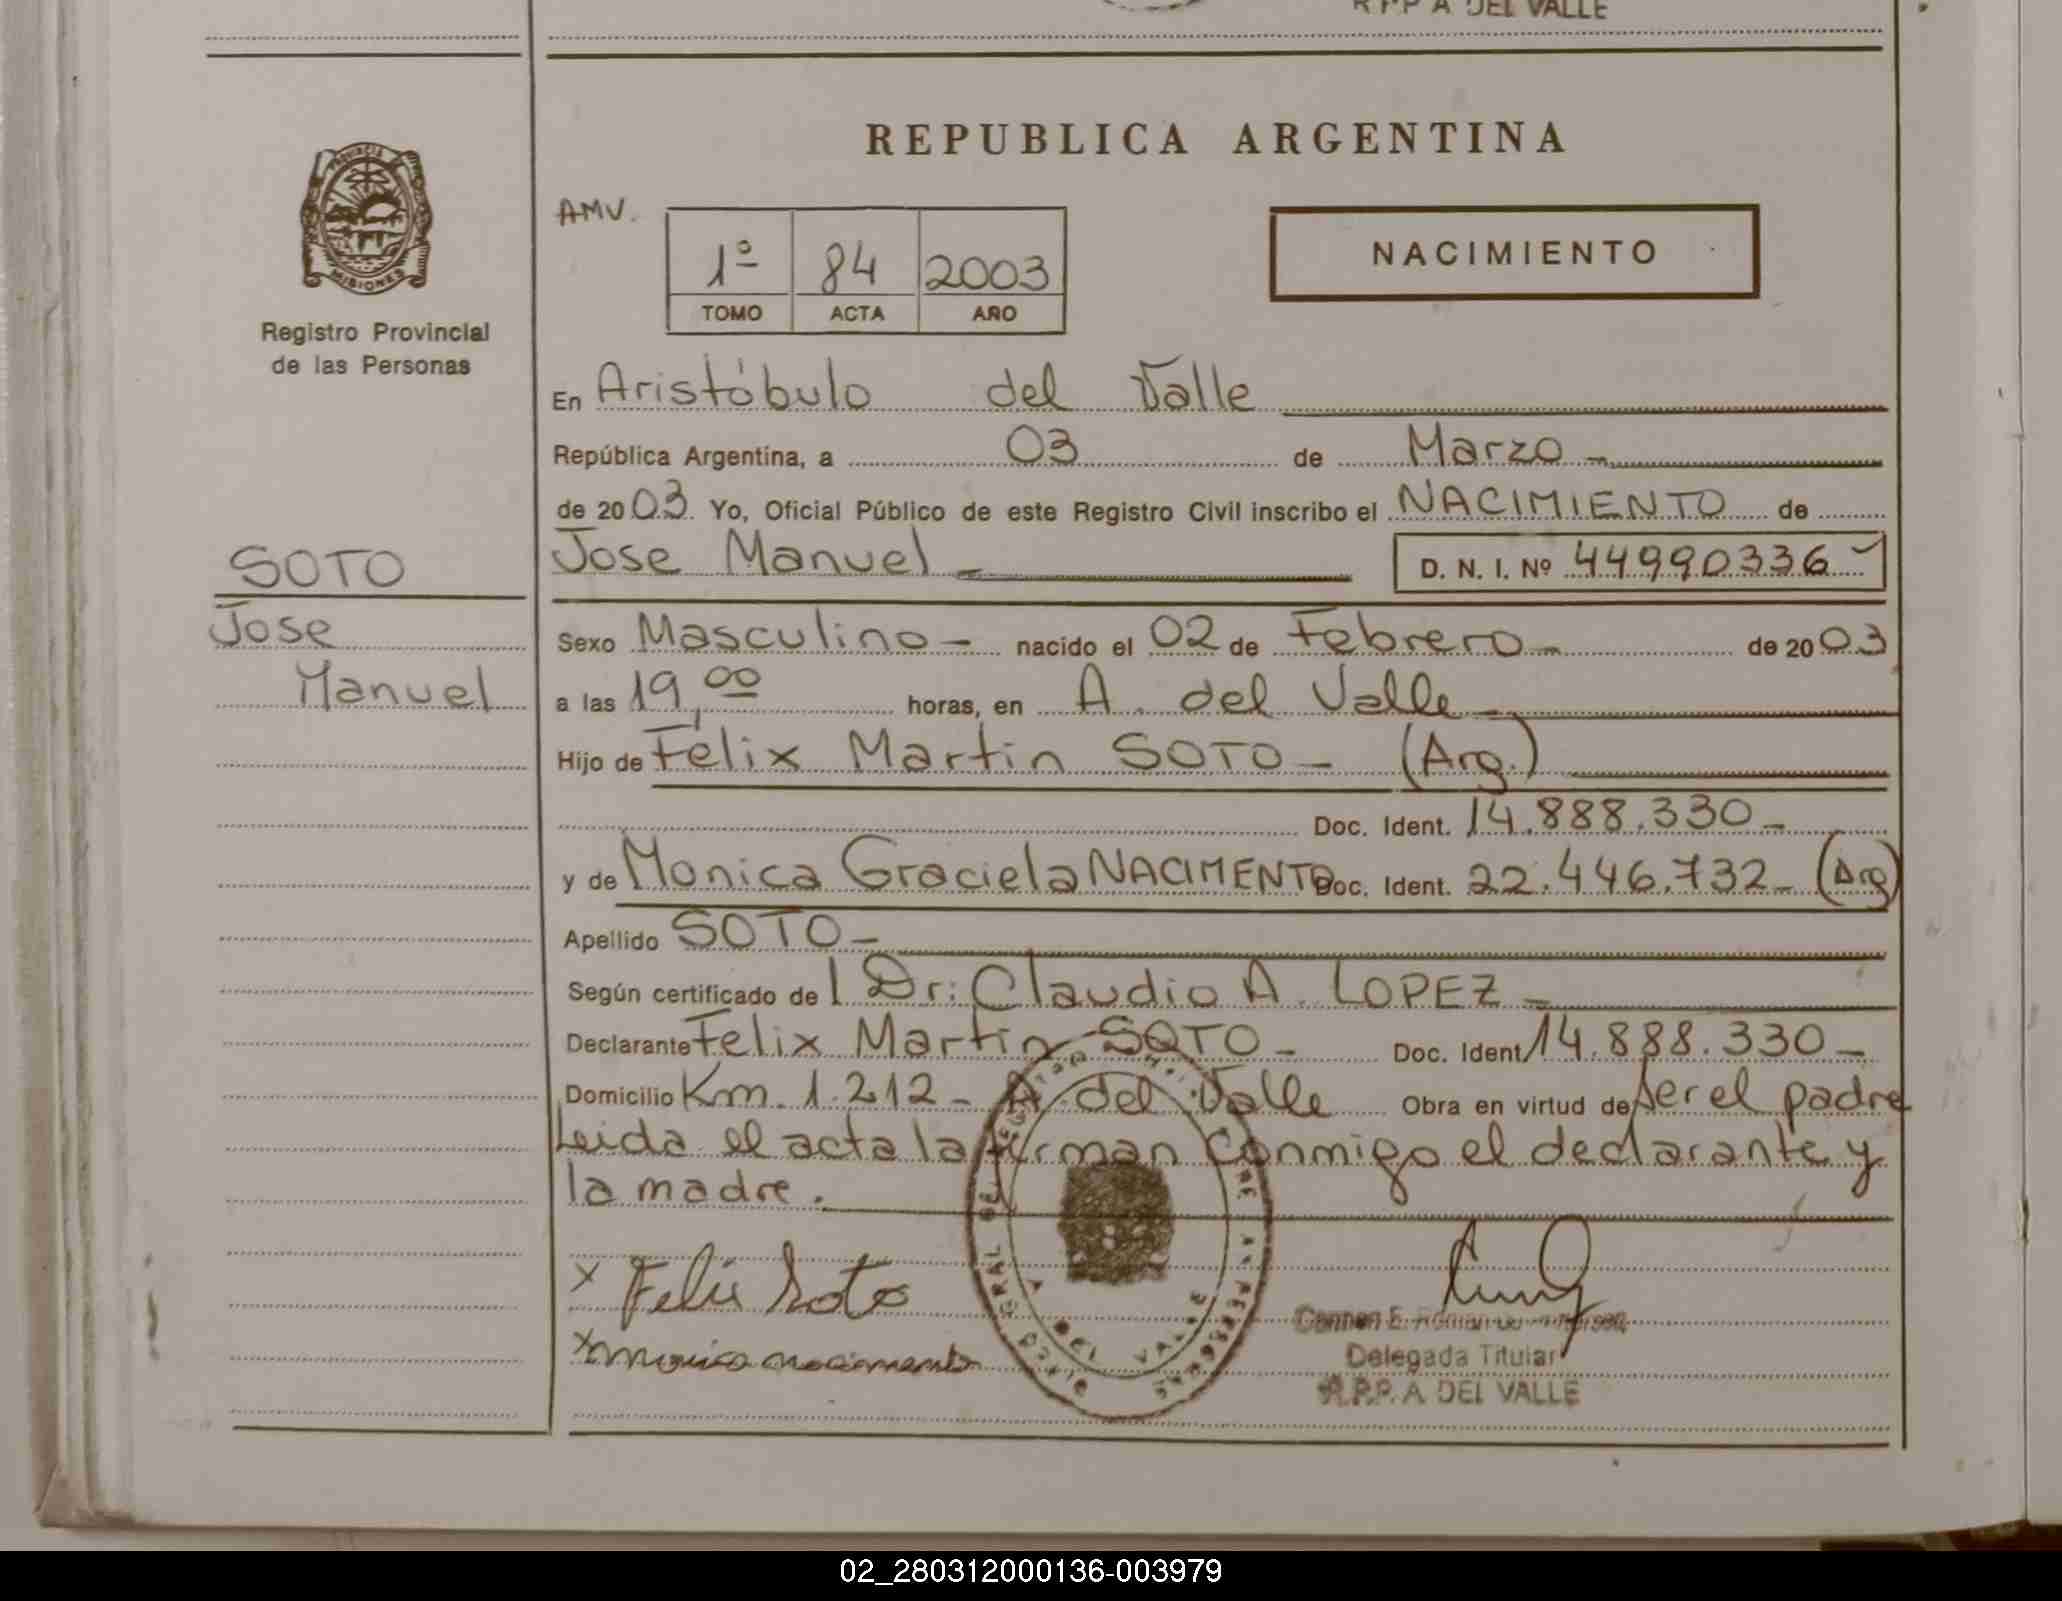 R.P.P A DEL VALLE
REPUBLICA ARGENTINA
PROVINCIA DE
MISIONES
Registro Provincial
de las Personas
AMV.
1º 84 2003
TOMO ACTA AÑO
NACIMIENTO
En Aristóbulo del Valle
República Argentina, a 03 de Marzo
de 2003. Yo, Oficial Público de este Registro Civil inscribo el NACIMIENTO de
SOTO
Jose Manuel
Jose Manuel D. N. I. Nº 44990336
Sexo Masculino nacido el 02 de Febrero de 2003
a las 19,00 horas, en A. del Valle
Hijo de Félix Martin SOTO (Arg.)
Doc. Ident. 14.888.330
y de Monica Graciela NACIMENTO Doc. Ident. 22.446.732 (Arg)
Apellido SOTO
Según certificado del Dr: Claudio A. LOPEZ
Declarante Felix Martin SOTO Doc. Ident 14.888.330
Domicilio Km. 1.212 - A. del Valle Obra en virtud de ser el padre
Leida el acta la firman conmigo el declarante y
la madre.
x Felix Soto
x Monica nacimento
A. DEL VALLE
Carmen E.
Delegada Titular
R.P.P. A DEL VALLE
02_280312000136-003979